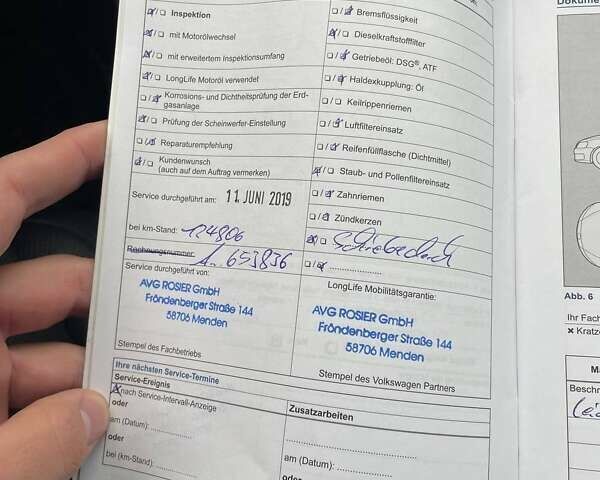 Dokume
□/□ Inspektion
□/□ Bremsflüssigkeit
□/□ mit Motorölwechsel
□/□ Dieselkraftstofffilter
□/□ mit erweitertem Inspektionsumfang
□/□ Getriebeöl: DSG®, ATF
□/□ LongLife Motoröl verwendet
□/□ Haldexkupplung: Öl
□/□ Korrosions- und Dichtheitsprüfung der Erd-
gasanlage
□/□ Keilrippenriemen
□/□ Prüfung der Scheinwerfer-Einstellung
□/□ Luftfiltereinsatz
□/□ Reparaturempfehlung
□/□ Reifenfüllflasche (Dichtmittel)
□/□ Kundenwunsch
(auch auf dem Auftrag vermerken)
□/□ Staub- und Pollenfiltereinsatz
Service durchgeführt am: 11. JUNI 2019
□/□ Zahnriemen
□/□ Zündkerzen
bei km-Stand: 124806
□/□ Schiebedach
Rechnungsnummer: 653836
□/□ ....................
Service durchgeführt von:
LongLife Mobilitätsgarantie:
AVG ROSIER GmbH
Fröndenberger Straße 144
58706 Menden
AVG ROSIER GmbH
Fröndenberger Straße 144
58706 Menden
Stempel des Fachbetriebs
Stempel des Volkswagen Partners
Ihre nächsten Service-Termine
Service-Ereignis
Zusatzarbeiten
nach Service-Intervall-Anzeige
oder
am (Datum):
oder
bei (km-Stand):
am (Datum):
oder
Abb. 6
Ihr Fach
× Kratze
Ma
Beschr